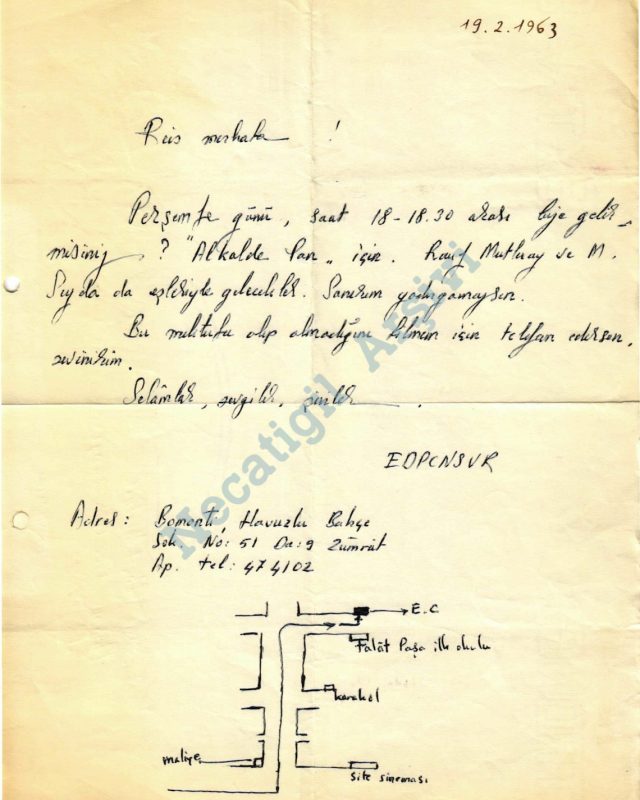 19.2.1963
Reis merhaba !
Perşembe günü, saat 18-18.30 arası bize gelir
misiniz ? "Alkalde Pan„ için. Rauf Mutluay ve M.
Seyda da eşleriyle gelecekler. Sanırım yadırgamazsın.
Bu mektubu alıp almadığını bilmem için telefon edersen,
sevinirim.
Selâmlar, sevgiler, şiirler.
EDPCNSVR
Adres : Bomonti, Havuzlu Bahçe
Sok. No: 51 Da: 9 Zümrüt
Ap. tel: 474102
E.C
Talât Paşa ilk okulu
karakol
maliye
Site sineması
Necatigil Arşivi